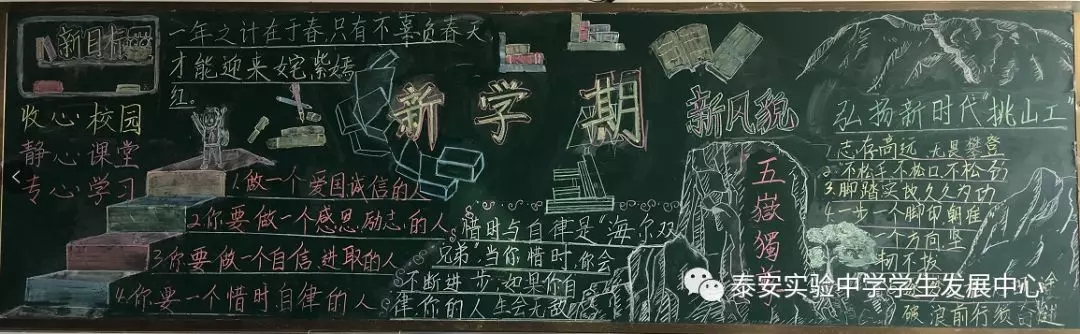 新目标
一年之计在于春,只有不辜负春天,
才能迎来姹紫嫣
红。
收心校园
静心课堂
专心学习
1.做一个爱国诚信的人
2.你要做一个感恩励志的人
3.你要做一个自信进取的人
4.你要一个惜时自律的人
新学期
新风貌
惜时与自律是“海尔双
兄弟”当你惜时,你会
不断进步;如果你自
律,你的人生会无敌
五嶽獨
弘扬新时代“挑山工”
1.志存高远 无畏攀登
2.不松手不松口不松劲
3.脚踏实地久久为功
4.一步一个脚印朝准
一个方向,坚
韧不拔
浪前行
泰安实验中学学生发展中心